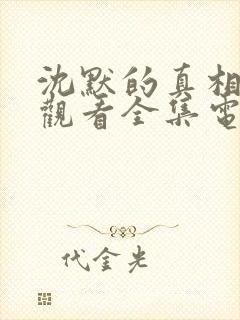 沈默的真相
觀看全集電
代金光